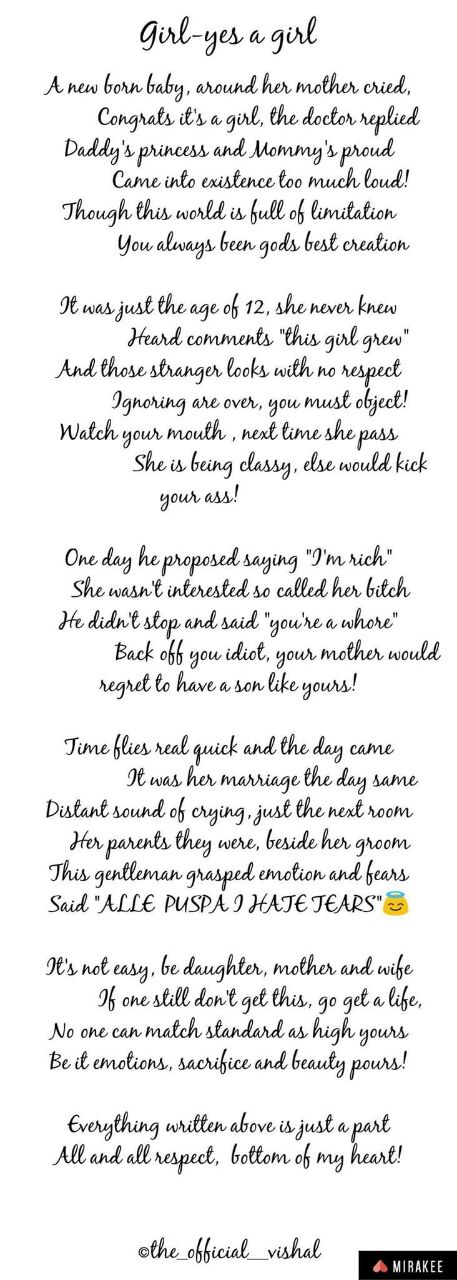 Girl-yes a girl
A new born baby, around her mother cried,
Congrats it's a girl, the doctor replied
Daddy's princess and Mommy's proud
Came into existence too much loud!
Though this world is full of limitation
You always been gods best creation
It was just the age of 12, she never knew
Heard comments "this girl grew"
And those stranger looks with no respect
Ignoring are over, you must object!
Watch your mouth , next time she pass
She is being classy, else would kick
your ass!
One day he proposed saying "I'm rich"
She wasn't interested so called her bitch
He didn't stop and said "you're a whore"
Back off you idiot, your mother would
regret to have a son like yours!
Time flies real quick and the day came
It was her marriage the day same
Distant sound of crying, just the next room
Her parents they were, beside her groom
This gentleman grasped emotion and fears
Said "ALLE PUSPA I HATE TEARS"😇
It's not easy, be daughter, mother and wife
If one still don't get this, go get a life,
No one can match standard as high yours
Be it emotions, sacrifice and beauty pours!
Everything written above is just a part
All and all respect, bottom of my heart!
©the_official__vishal
MIRAKEE